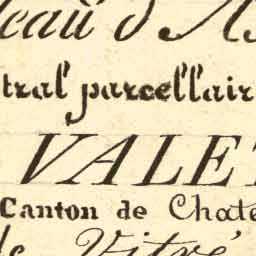 leau d'As
tral parcellair
VALET
Canton de Chate
de Vitré